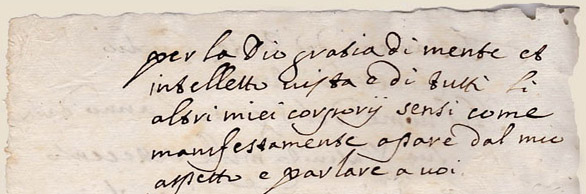 per la Dio gratia di mente et
intelletto vista e di tutti li
altri miei corporij sensi come
manifestamente apare dal mio
aspetto e parlare a voi